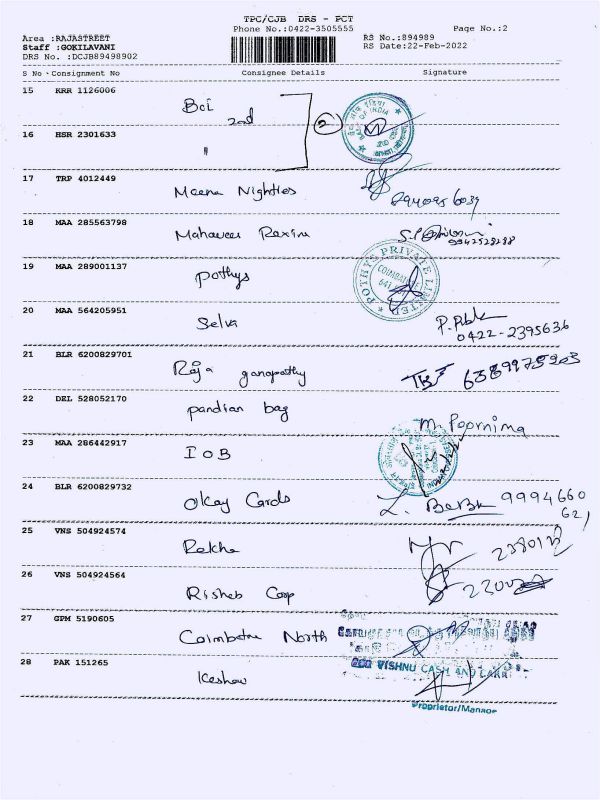 TPC/CJB DRS - PCT
Phone No.:0422-3505555 Page No.:2
Area :RAJASTREET RS No.:894989
Staff :GOKILAVANI RS Date:22-Feb-2022
DRS No. :DCJB89498902
S No Consignment No Consignee Details Signature
15 KRR 1126006 BOI 2nd
2
16 HSR 2301633 "
17 TRP 4012449 Meena Nighties
18 MAA 285563798 Mahaveer Rexin
19 MAA 289001137 Pothys
POTHYS PRIVATE LIMITED
COIMBATORE
641
20 MAA 564205951 Selva
0422-2395636
21 BLR 6200829701 Raja ganapathy
22 DEL 528052170 pandian bag M. Poornima
23 MAA 286442917 IOB
24 BLR 6200829732 Okay Cards 9994660
621
25 VNS 504924574 Rekha
26 VNS 504924564 Risheb Corp
27 GPM 5190605 Coimbatore North
28 PAK 151265 Keshav
VISHNU CASH AND CARRY
Proprietor/Manager